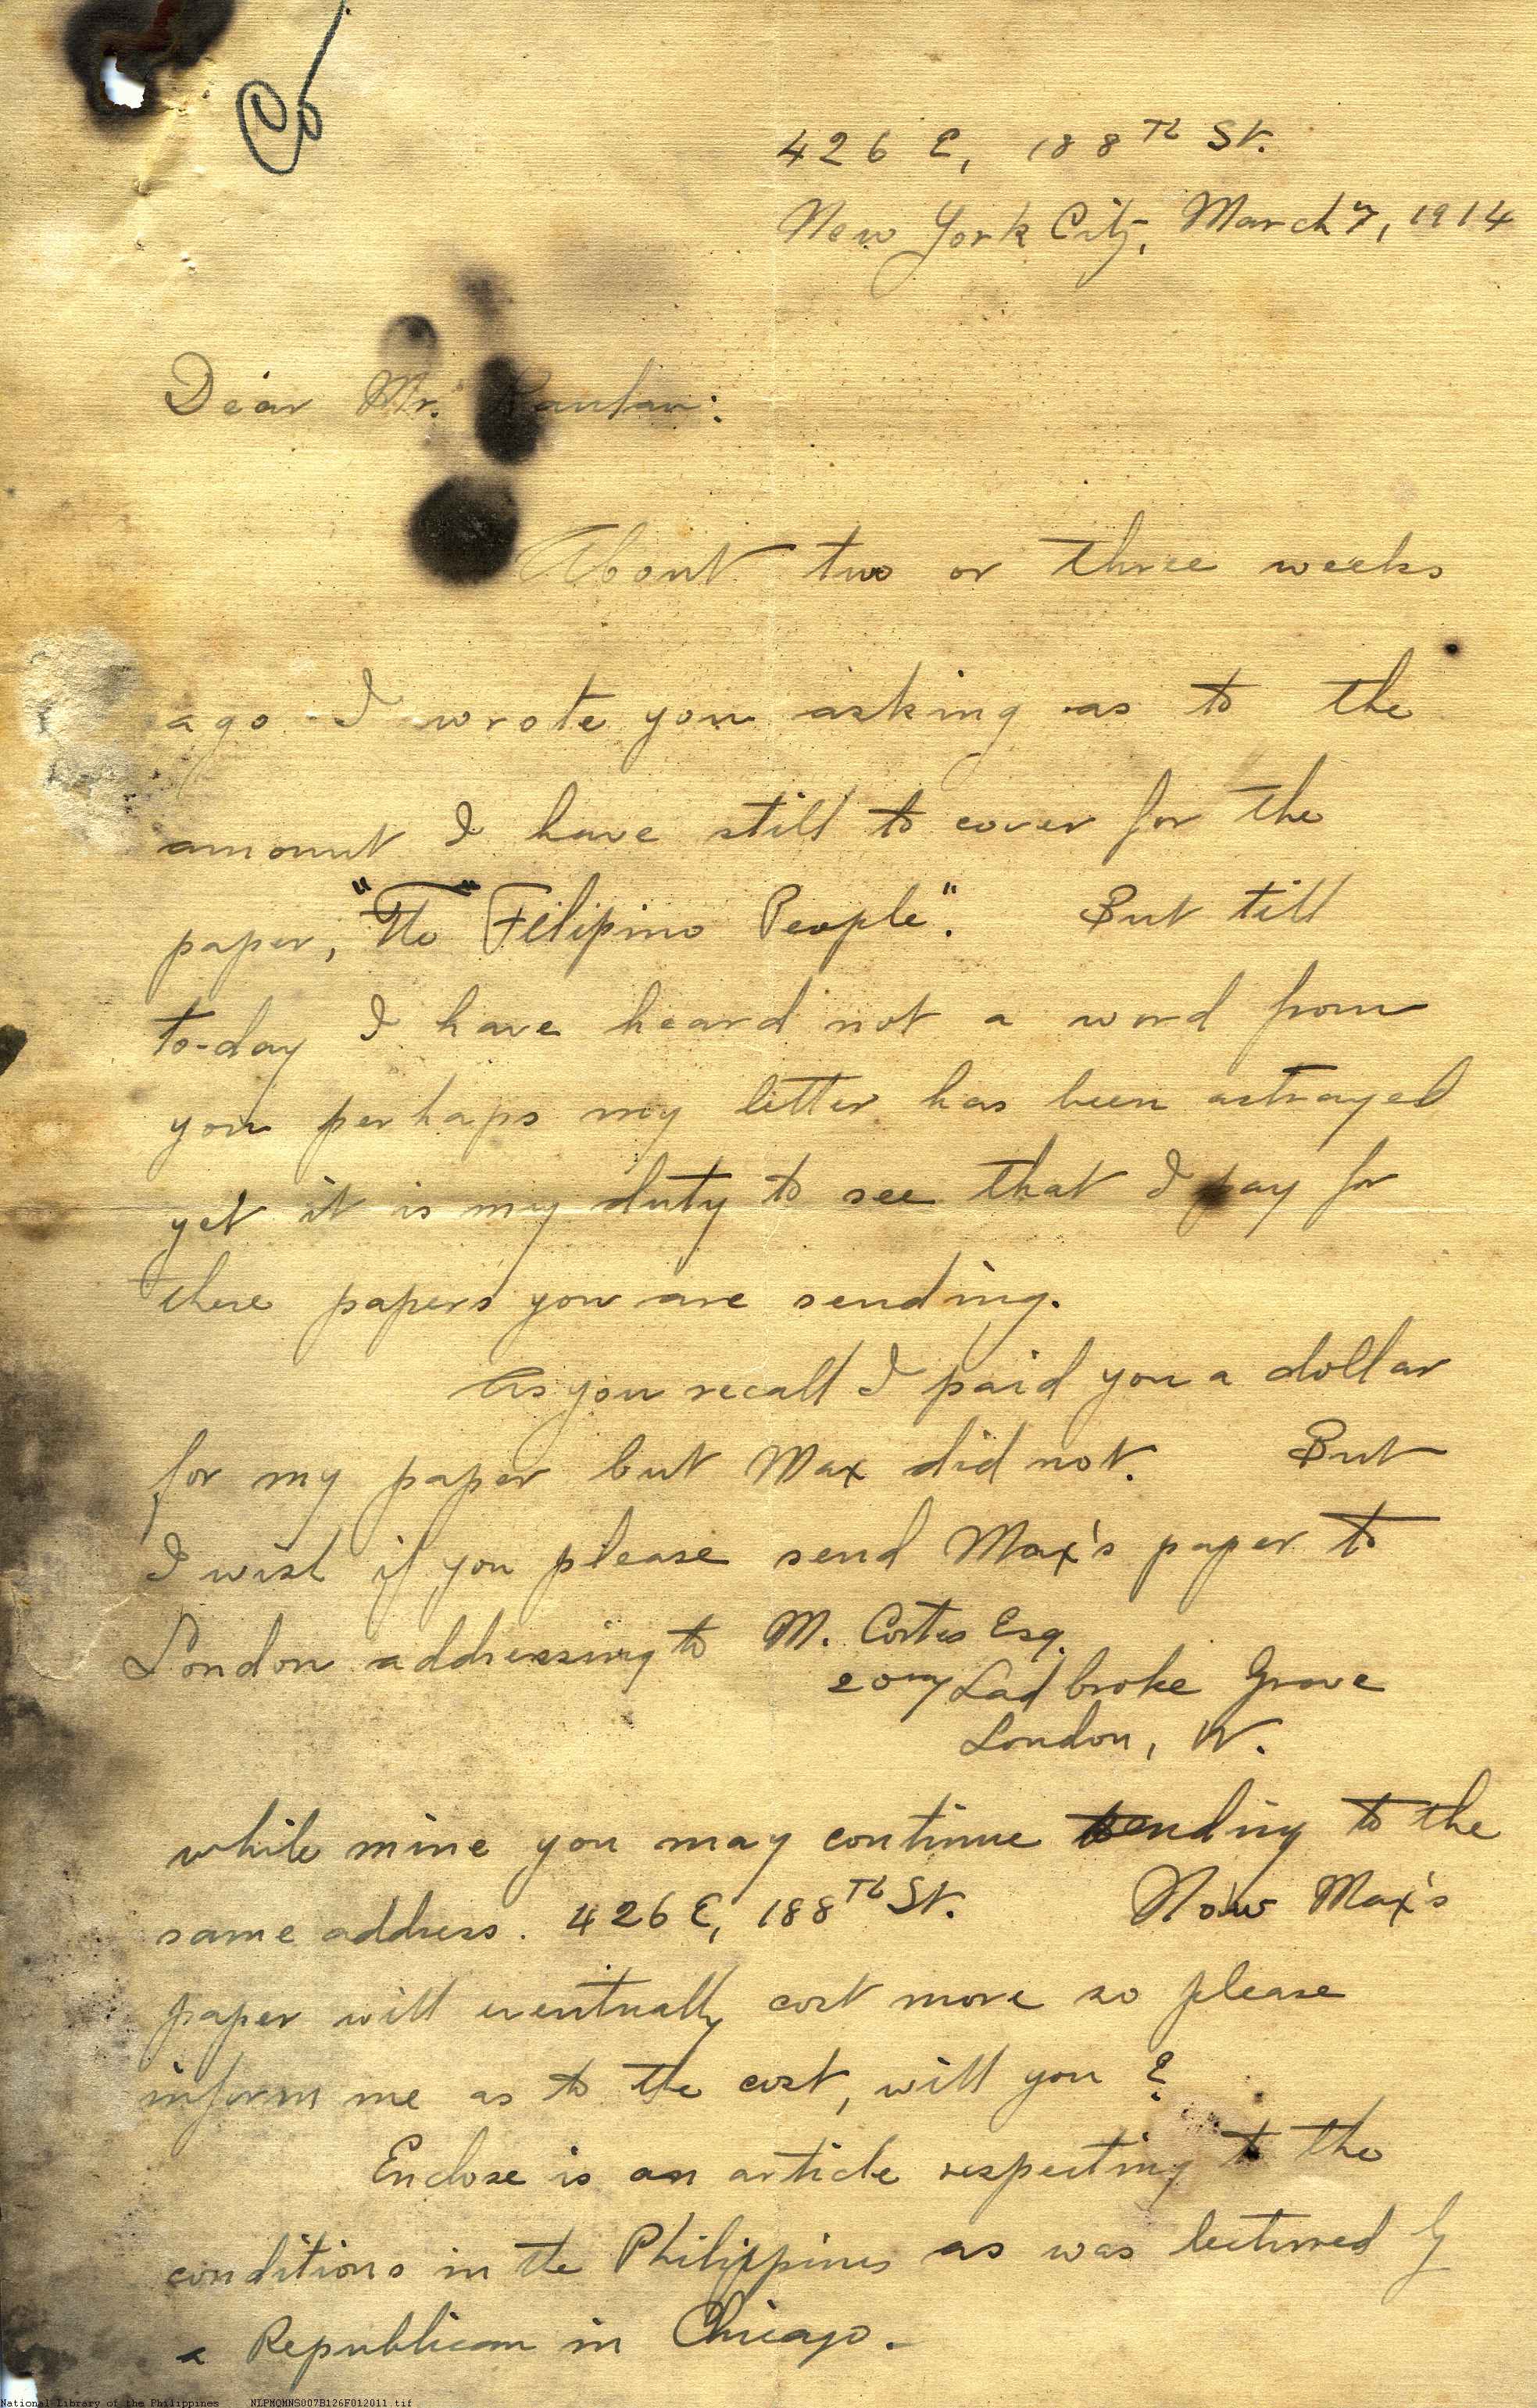 Co
426 E, 188TH St.
New York City, March 7, 1914
Dear Mr.
About two or three weeks
ago I wrote you asking as to the
amount I have still to cover for the
paper, "The" Filipino People". But till
to-day I have heard not a word from
you perhaps my letter has been astrayed
yet it is my duty to see that I pay for
these papers you are sending.
As you recall I paid you a dollar
for my paper but Max did not. But
I wish if you please send Max's paper to
London addressing to M. Cortes Esq.
Ladbroke Grove
London, W.
while mine you may continue sending to the
same address. 426 E, 188TH St. Now Max's
paper will eventually cost more so please
inform me as to the cost, will you?
Enclose is an article respecting to the
conditions in the Philippines as was lectured by
a Republican in Chicago.
National Library of the Philippines NLPMQMNS007B126F012011.tif